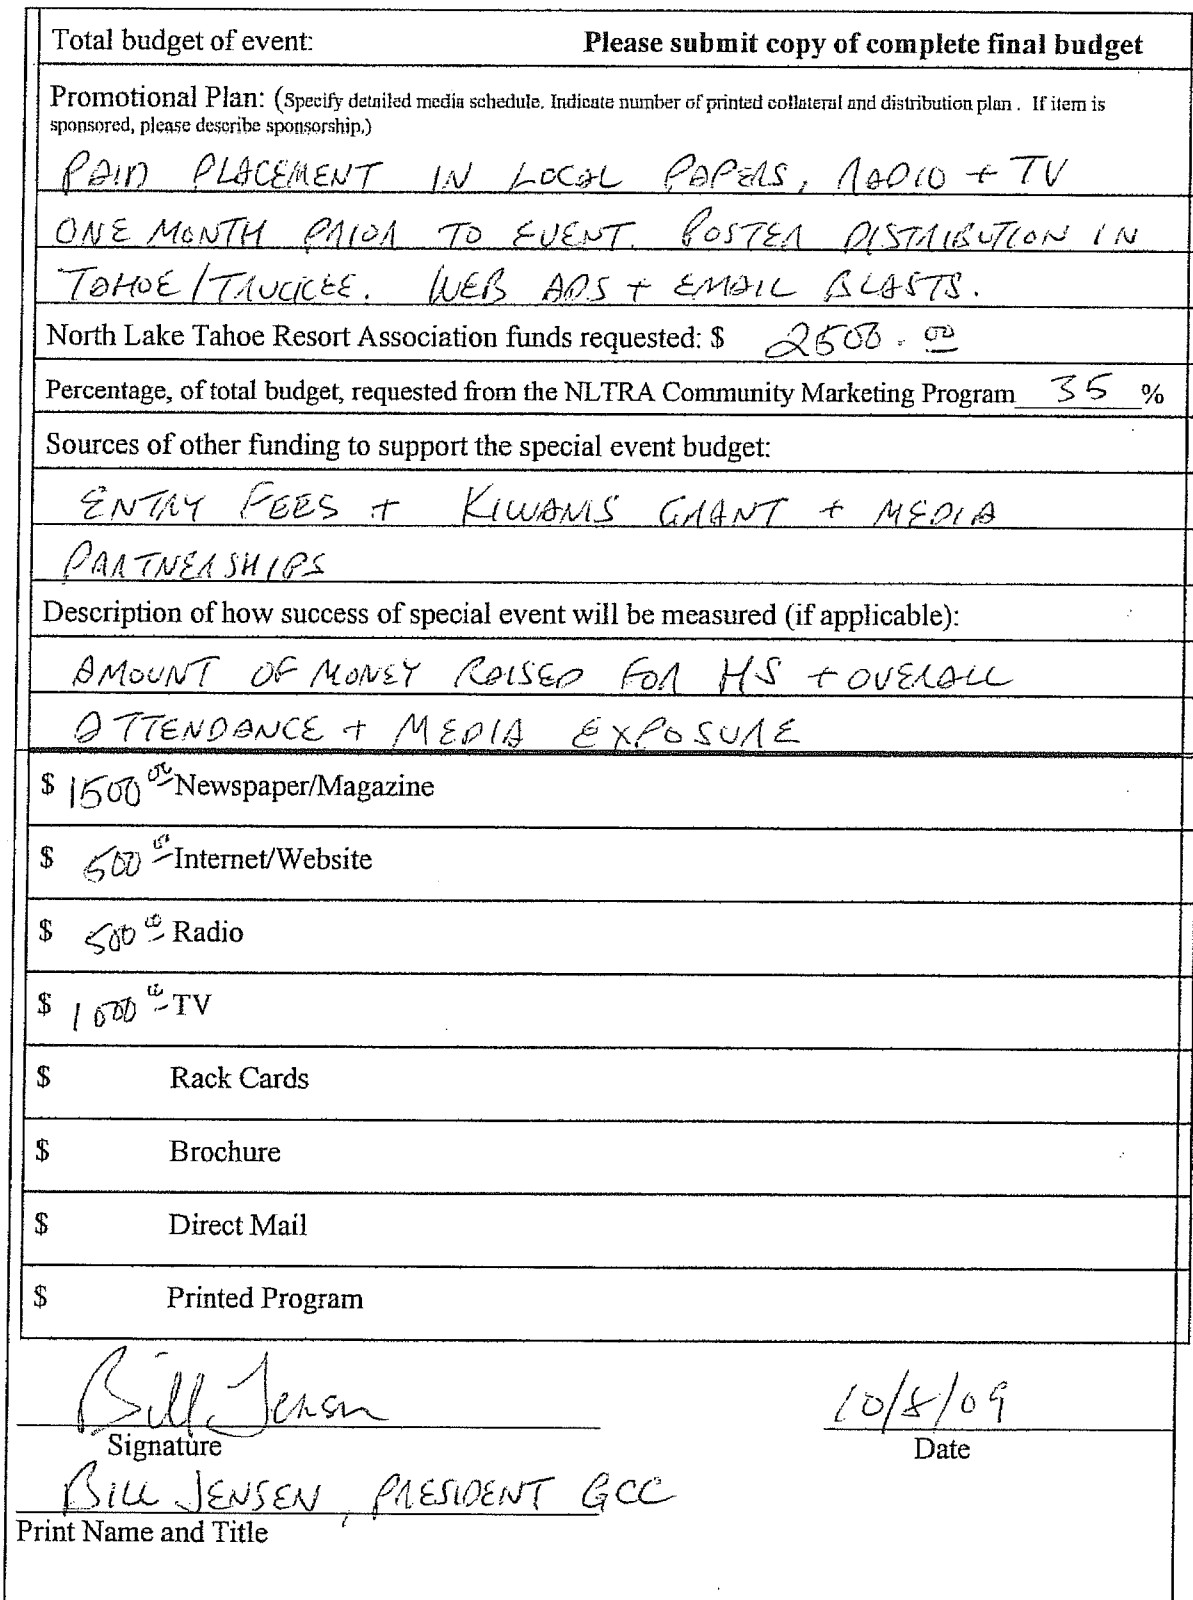 Total budget of event: Please submit copy of complete final budget
Promotional Plan: (Specify detailed media schedule. Indicate number of printed collateral and distribution plan . If item is
sponsored, please describe sponsorship.)
PAID PLACEMENT IN LOCAL PAPERS, RADIO + TV
ONE MONTH PRIOR TO EVENT. POSTER DISTRIBUTION IN
TAHOE/TRUCKEE. WEB ADS + EMAIL BLASTS.
North Lake Tahoe Resort Association funds requested: $ 2500.00
Percentage, of total budget, requested from the NLTRA Community Marketing Program 35 %
Sources of other funding to support the special event budget:
ENTRY FEES + KIWANIS GRANT + MEDIA
PARTNERSHIPS
Description of how success of special event will be measured (if applicable):
AMOUNT OF MONEY RAISED FOR HS + OVERALL
ATTENDANCE + MEDIA EXPOSURE
$ 1500 00 Newspaper/Magazine
$ 500 00 Internet/Website
$ 500 00 Radio
$ 1000 00 TV
$ Rack Cards
$ Brochure
$ Direct Mail
$ Printed Program
Bill Jensen 10/8/09
Signature Date
BILL JENSEN, PRESIDENT GCC
Print Name and Title